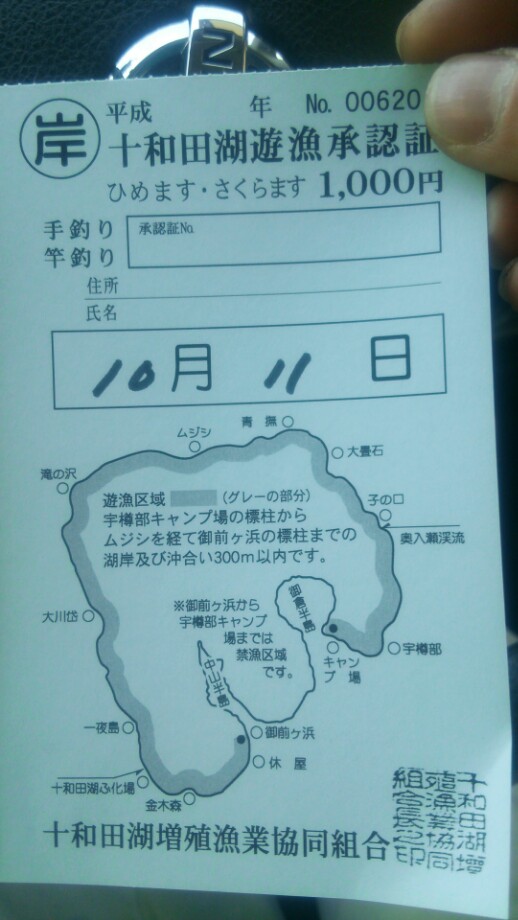 岸
平成 年 No. 00620
十和田湖遊漁承認証
ひめます・さくらます 1,000円
手釣り
竿釣り
承認証No.
住所
氏名
10月 11日
青撫
ムジシ
大畳石
滝の沢
子の口
奥入瀬渓流
遊漁区域 (グレーの部分)
宇樽部キャンプ場の標柱から
ムジシを経て御前ヶ浜の標柱までの
湖岸及び沖合い300m以内です。
御倉半島
※御前ヶ浜から
宇樽部キャンプ
場までは
禁漁区域
です。
大川岱
宇樽部
キャン
プ場
中山半島
一夜島
御前ヶ浜
休屋
十和田湖ふ化場
金木森
十和田湖増殖漁業協同組合
十和田湖増
殖漁業協同
組合長之印